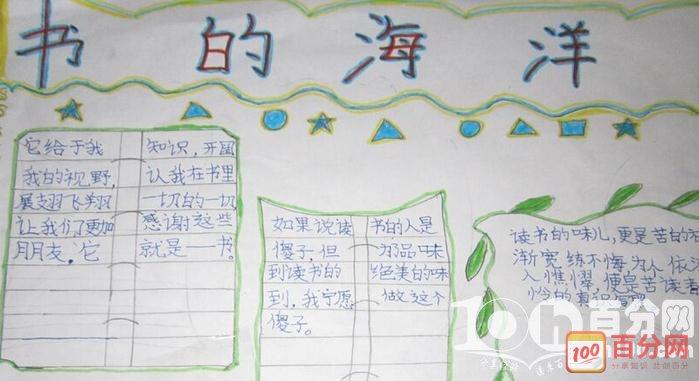 书的海洋
它给于我 知识,开阔
我的视野, 认我在书里
展翅飞翔 一切的一切
让我们更加 感谢这些
朋友.它 就是——书。
如果说读 书的人是
傻子,但 为品味
到读书的 绝美的味
到,我宁愿 做这个
傻子。
读书的味儿,更是苦的
渐宽,练不悔,为人依
入憔悴,便是苦读者
百分网
100 百分网
分享知识 共创百分